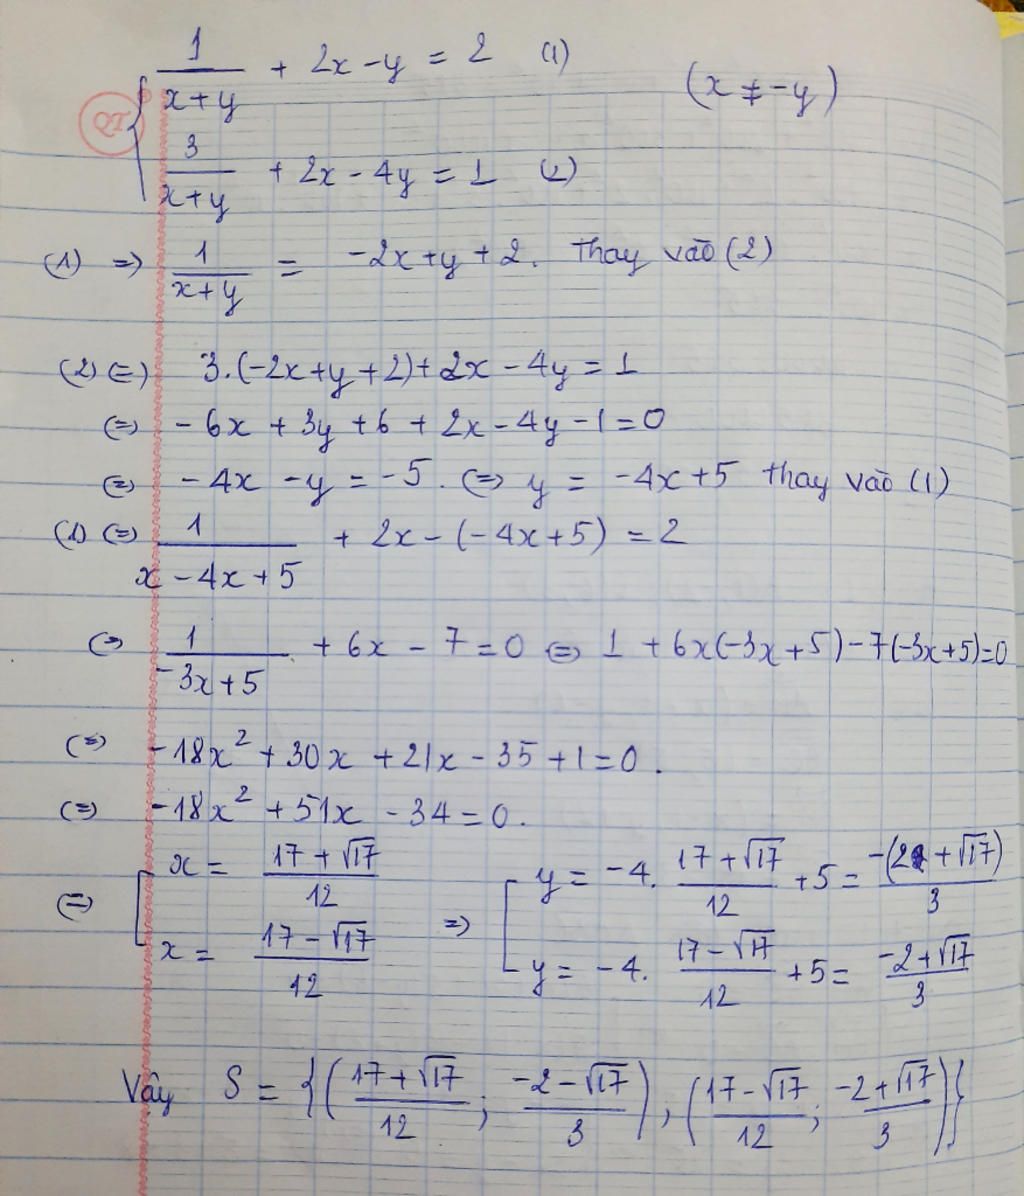 1/(x+y) + 2x - y = 2 (1)
(x ≠ -y)
3/(x+y) + 2x - 4y = 1 (2)
(1) => 1/(x+y) = -2x + y + 2. Thay vào (2)
(2) (=) 3.(-2x + y + 2) + 2x - 4y = 1
(=) - 6x + 3y + 6 + 2x - 4y - 1 = 0
(=) - 4x - y = -5. (=) y = -4x + 5 thay vào (1)
(1) (=) 1/(x - 4x + 5) + 2x - (-4x + 5) = 2
(=) 1/(-3x + 5) + 6x - 7 = 0 (=) 1 + 6x(-3x + 5) - 7(-3x + 5) = 0
(=) -18x² + 30x + 21x - 35 + 1 = 0.
(=) -18x² + 51x - 34 = 0.
(=) [ x = (17 + √17)/12 => [ y = -4. (17 + √17)/12 + 5 = -(2 + √17)/3
x = (17 - √17)/12 y = -4. (17 - √17)/12 + 5 = (-2 + √17)/3
Vậy S = {((17 + √17)/12 ; (-2 - √17)/3), ((17 - √17)/12 ; (-2 + √17)/3)}